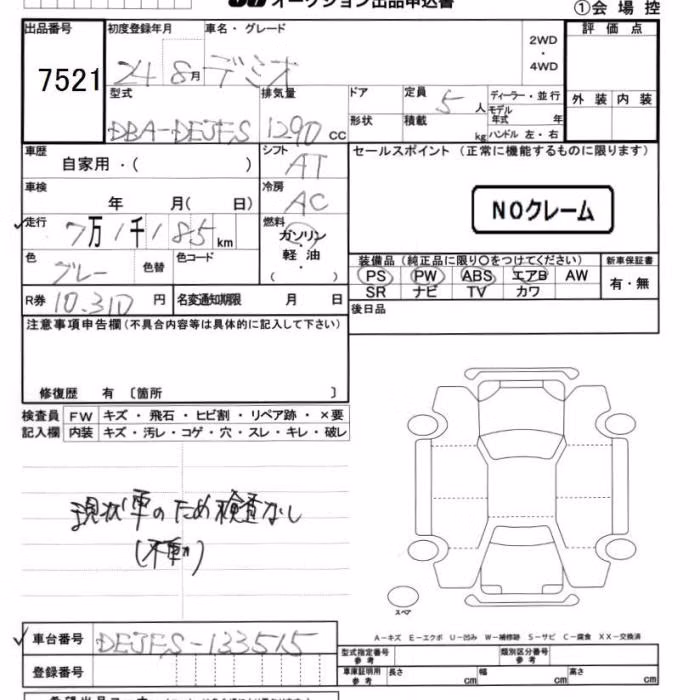 オークション出品申込書
①会場控
出品番号 初度登録年月 車名・グレード 評価点
7521 24 8月 デミオ 2WD・4WD
型式 排気量 ドア 定員 ディーラー・並行 外装 内装
DBA-DEJFS 1290 cc 5人 モデル年式 年
形状 積載 kg ハンドル 左・右
車歴 シフト セールスポイント (正常に機能するものに限ります)
自家用・( ) AT
車検 冷房
年 月( 日) AC NOクレーム
走行 燃料
7万1千185km ガソリン・軽油・( )
色 色替 色コード 装備品 (純正品に限り○をつけてください) 新車保証書
グレー PS PW ABS エアB AW 有・無
SR ナビ TV カワ
R券 10,310 円 名変通知期限 月 日 後日品
注意事項申告欄 (不具合内容等は具体的に記入して下さい)
修復歴 有 〔箇所 〕
検査員 FW キズ・飛石・ヒビ割・リペア跡・×要
記入欄 内装 キズ・汚レ・コゲ・穴・スレ・キレ・破レ
現状車のため検査なし
(不動)
スペア
車台番号 DEJFS-133515
A-キズ E-エクボ U-凹み W-補修跡 S-サビ C-腐食 XX-交換済
型式指定番号 参考 類別区分番号 参考
登録番号 車庫証明用 参考 長さ cm 幅 cm 高さ cm